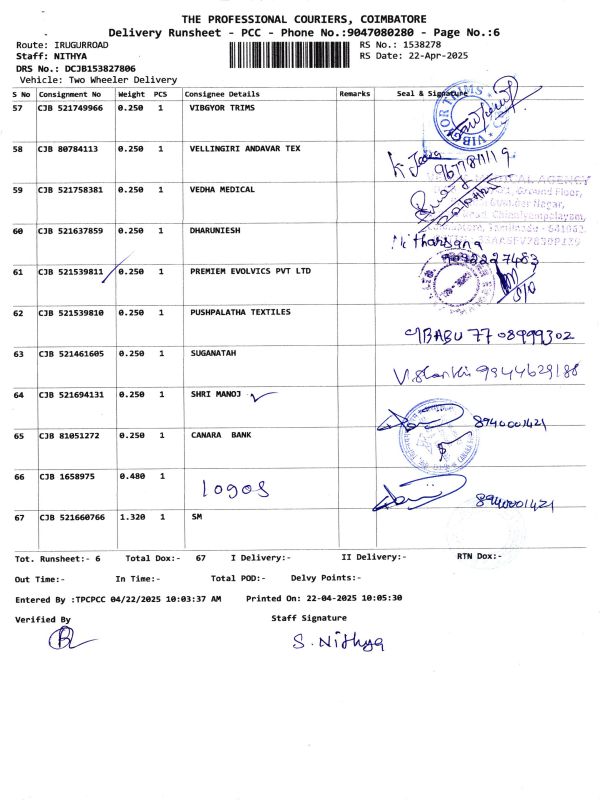 THE PROFESSIONAL COURIERS, COIMBATORE
Delivery Runsheet - PCC - Phone No.:9047080280 - Page No.:6
Route: IRUGURROAD RS No.: 1538278
Staff: NITHYA RS Date: 22-Apr-2025
DRS No.: DCJB153827806
Vehicle: Two Wheeler Delivery
S No Consignment No Weight PCS Consignee Details Remarks Seal & Signature
57 CJB 521749966 0.250 1 VIBGYOR TRIMS
VIBGYOR TRIMS
58 CJB 80784113 0.250 1 VELLINGIRI ANDAVAR TEX
59 CJB 521758381 0.250 1 VEDHA MEDICAL
60 CJB 521637859 0.250 1 DHARUNIESH
61 CJB 521539811 0.250 1 PREMIEM EVOLVICS PVT LTD
62 CJB 521539810 1 0.250 PUSHPALATHA TEXTILES
BABU 7708999302
63 CJB 521461605 0.250 1 SUGANATAH
9944629188
64 CJB 521694131 0.250 1 SHRI MANOJ
8940001421
65 CJB 81051272 0.250 1 CANARA BANK
66 CJB 1658975 0.480 1 logos
8940001421
67 CJB 521660766 1.320 1 SM
Tot. Runsheet:- 6 Total Dox:- 67 I Delivery:- II Delivery:- RTN Dox:-
Out Time:- In Time:- Total POD:- Delvy Points:-
Entered By :TPCPCC 04/22/2025 10:03:37 AM Printed On: 22-04-2025 10:05:30
Verified By Staff Signature
S. Nithya